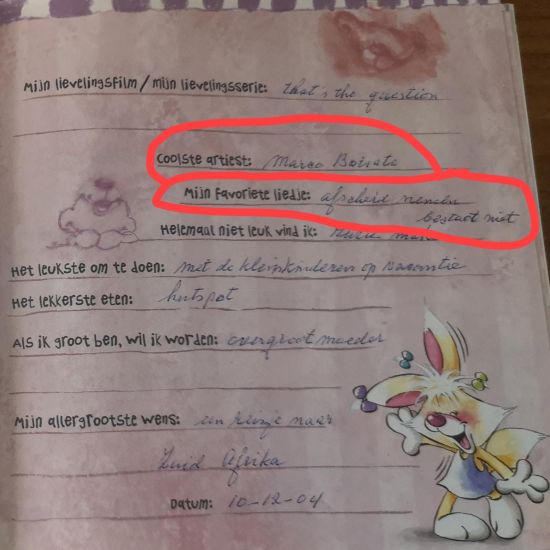 Mijn lievelingsfilm / mijn lievelingsserie: that's the question
Coolste artiest: Marco Borsato
Mijn favoriete liedje: afscheid nemen
bestaat niet
Helemaal niet leuk vind ik:
Het leukste om te doen: met de kleinkinderen op vacantie
Het lekkerste eten: hutspot
Als ik groot ben, wil ik worden: overgrootmoeder
Mijn allergrootste wens: een reisje naar
Zuid Afrika
Datum: 10-12-04